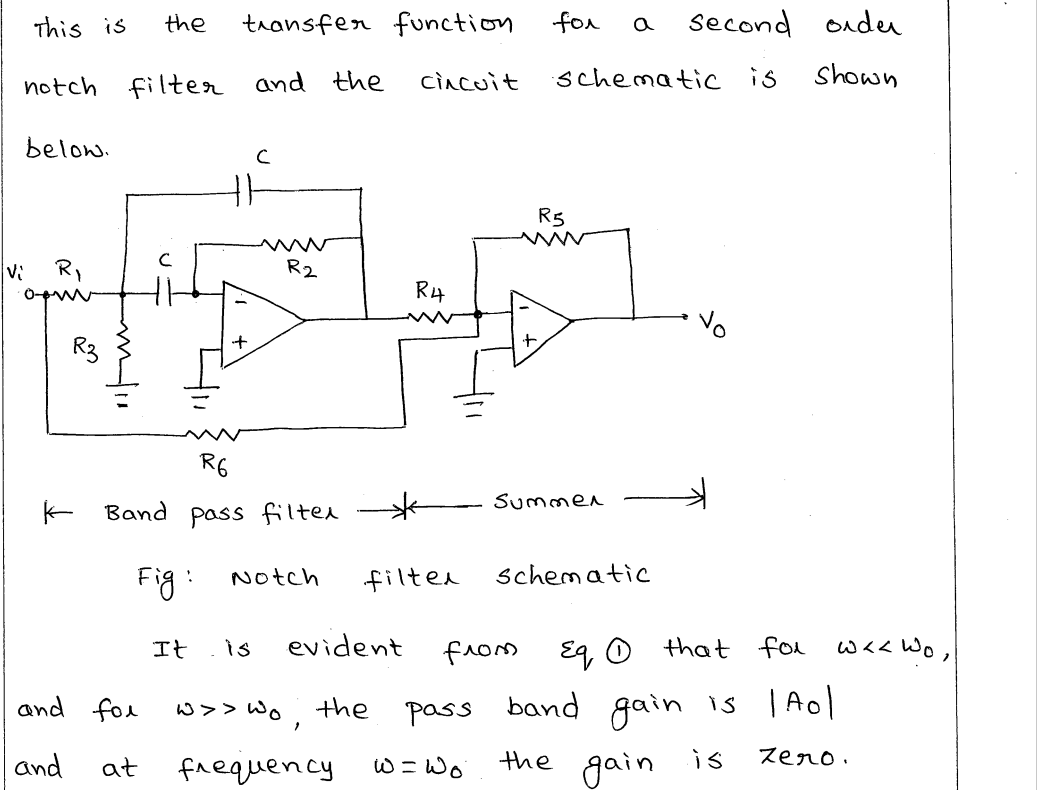 This is the transfer function for a second order
notch filter and the circuit schematic is shown
below.
C
R5
R2
Vi R1 C
R4
Vo
R3
- +
- +
R6
Band pass filter Summer
Fig: Notch filter schematic
It is evident from Eq ① that for ω<<ω0,
and for ω>>ω0, the pass band gain is |A0|
and at frequency ω=ω0 the gain is zero.